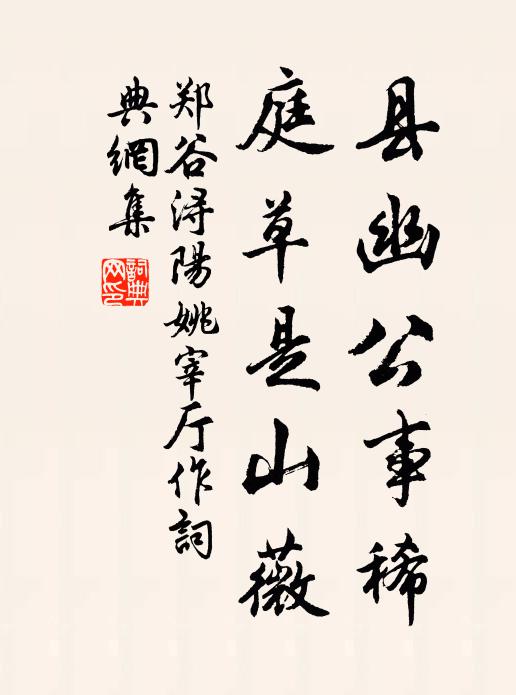 县幽公事稀
庭草是山薇
郑谷浔陽姚宰厅作詞
典網集
詞典网印